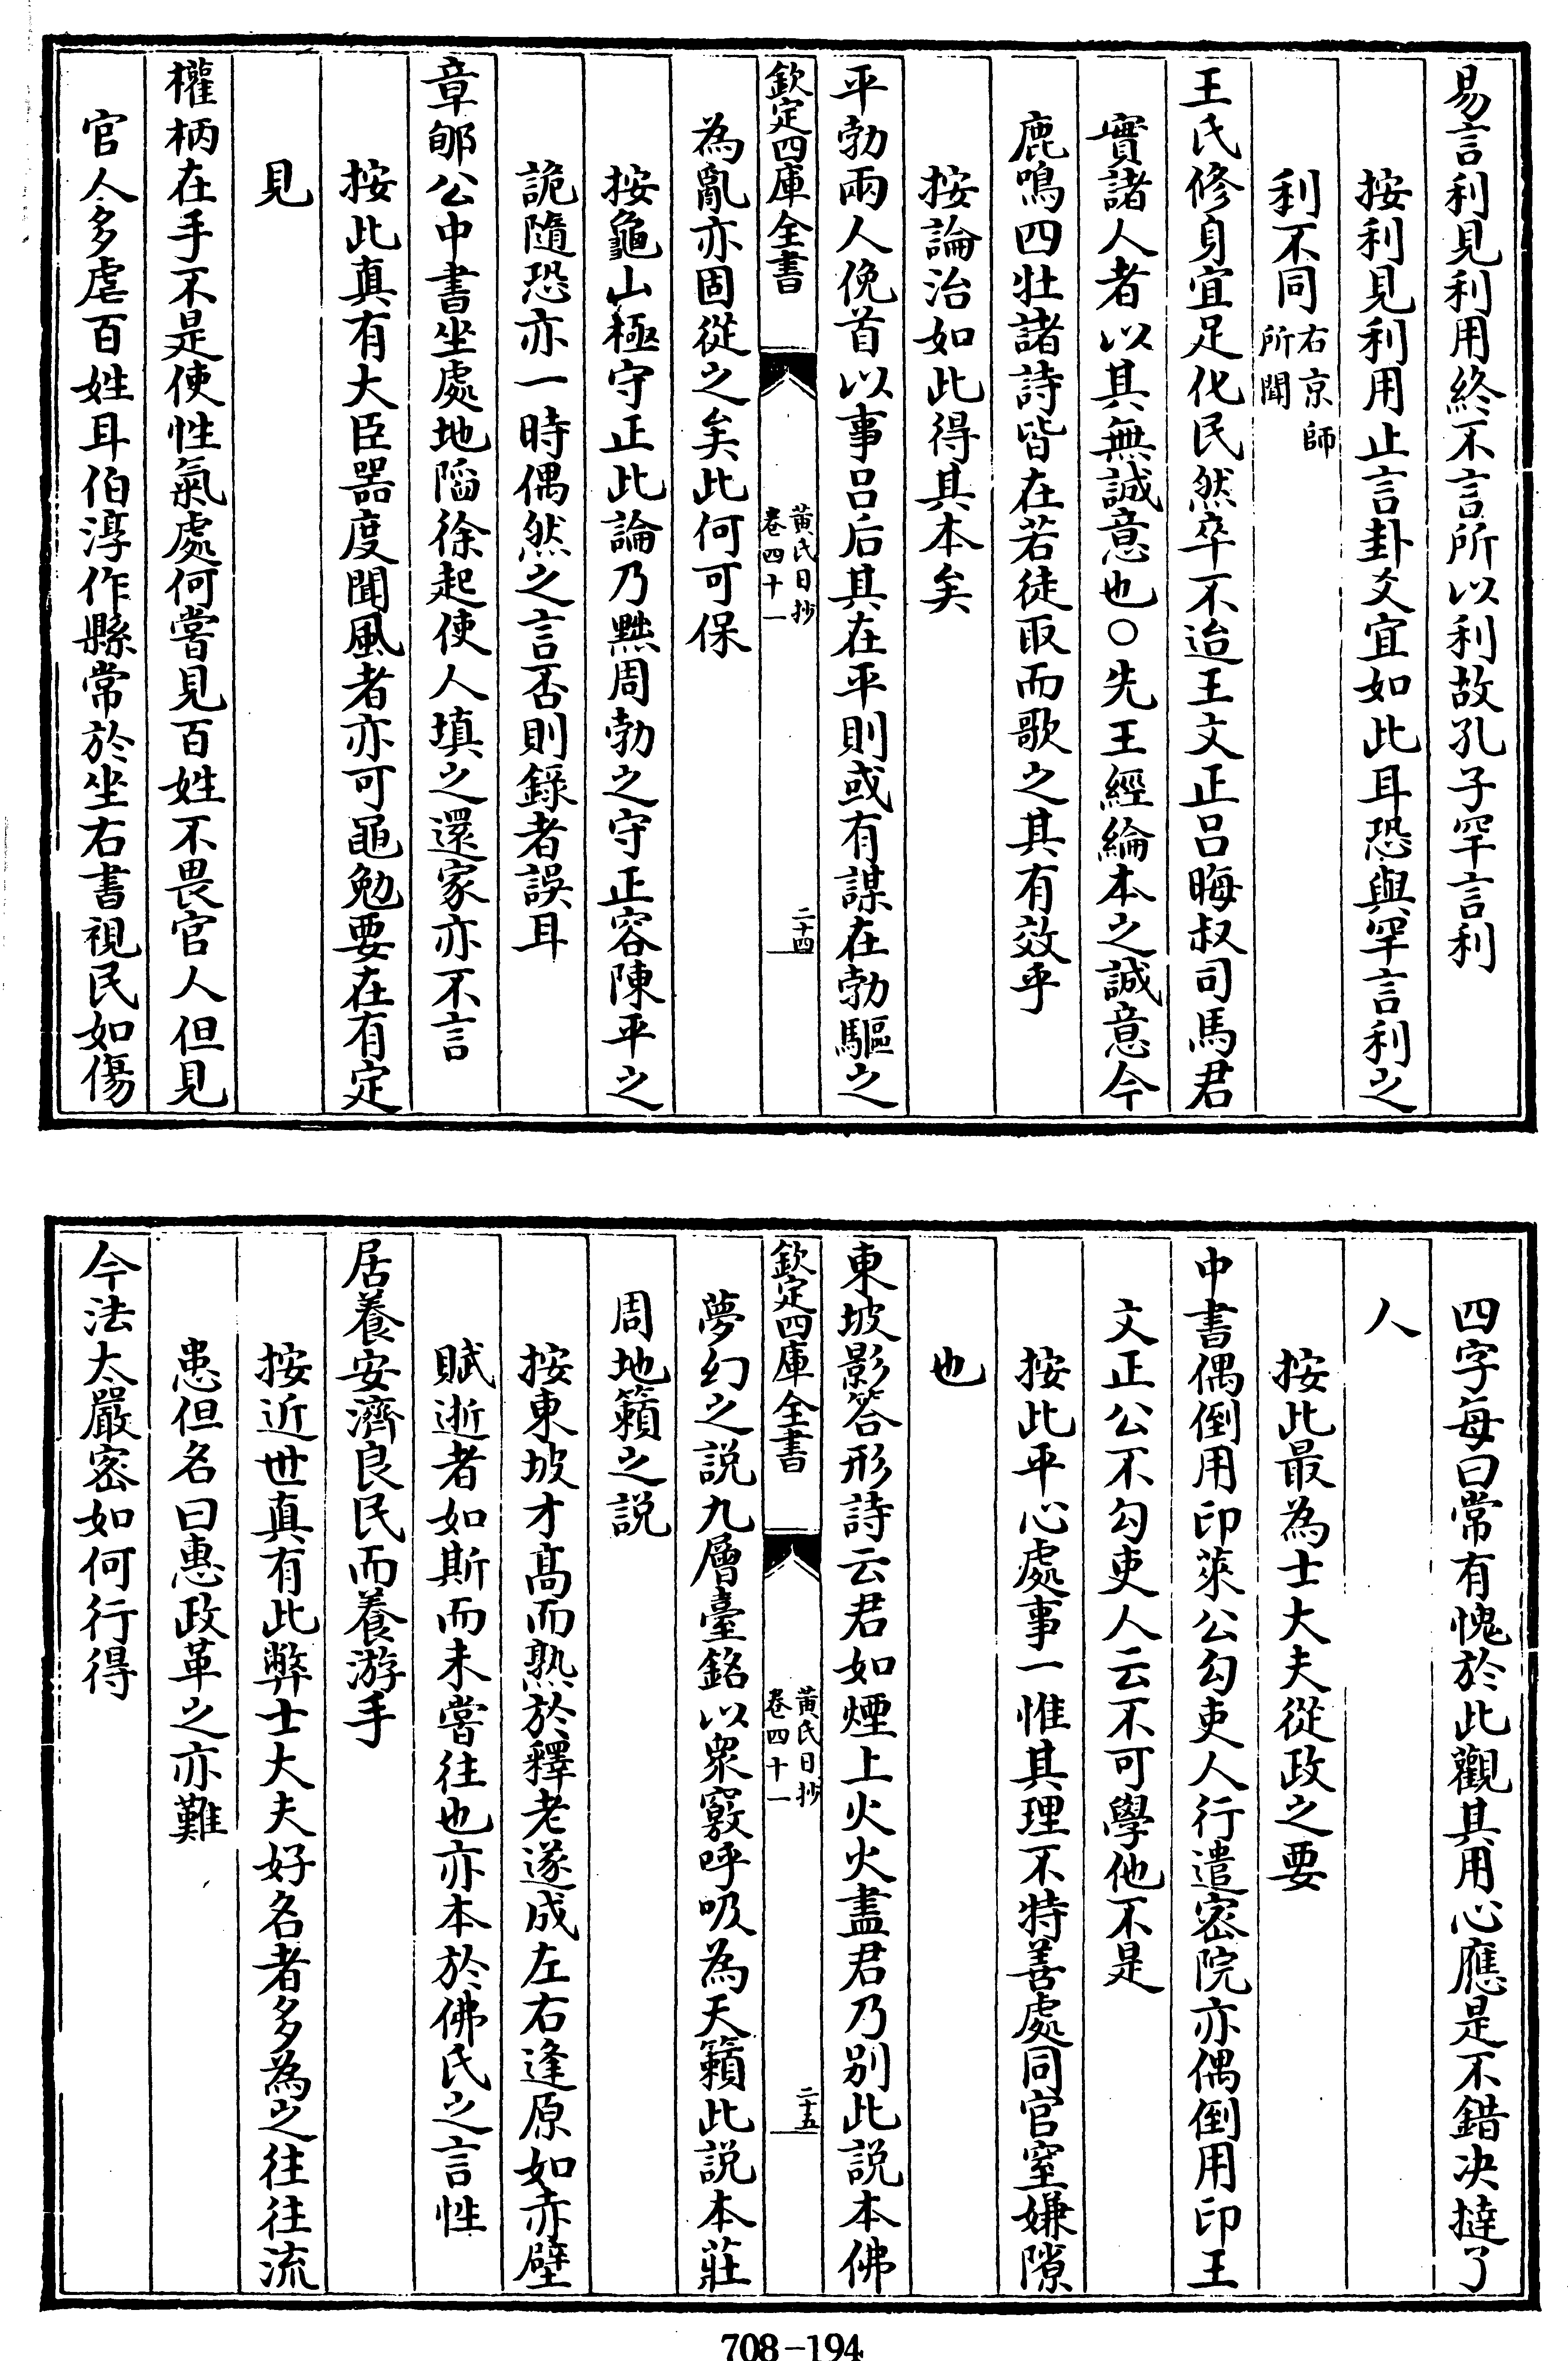 易言利見利用終不言所以利故孔子罕言利
按利見利用止言卦爻宜如此耳恐與罕言利之
利不同右京師所聞
王氏修身宜足化民然卒不迨王文正呂晦叔司馬君
實諸人者以其無誠意也○先王經綸本之誠意今
鹿鳴四牡諸詩皆在若徒取而歌之其有效乎
按論治如此得其本矣
平勃兩人俛首以事呂后其在平則或有謀在勃驅之
欽定四庫全書
黃氏日抄
卷四十一
二十四
為亂亦固從之矣此何可保
按龜山極守正此論乃黜周勃之守正容陳平之
詭隨恐亦一時偶然之言否則錄者誤耳
章郇公中書坐處地陷徐起使人填之還家亦不言
按此真有大臣器度聞風者亦可黽勉要在有定
見
權柄在手不是使性氣處何嘗見百姓不畏官人但見
官人多虐百姓耳伯淳作縣常於坐右書視民如傷
四字每曰常有愧於此觀其用心應是不錯决撻了
人
按此最為士大夫從政之要
中書偶倒用印萊公勾吏人行遣密院亦偶倒用印王
文正公不勾吏人云不可學他不是
按此平心處事一惟其理不特善處同官窒嫌隙
也
東坡影答形詩云君如煙上火火盡君乃別此說本佛
欽定四庫全書
黃氏日抄
卷四十一
二十五
夢幻之說九層臺銘以衆竅呼吸為天籟此說本莊
周地籟之說
按東坡才高而熟於釋老遂成左右逢原如赤壁
賦逝者如斯而未嘗往也亦本於佛氏之言性
居養安濟良民而養游手
按近世真有此弊士大夫好名者多為之往往流
患但名曰惠政革之亦難
今法太嚴密如何行得
708-194